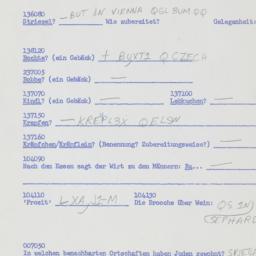 136080 — BUT IN VIENNA QGL BUM QQ
Striezel? Wie zubereitet? Gelegenheit:
138120
Bochts? (ein Gebäck) + BUXT1 Q CZECH
237005
Bobbe? (ein Gebäck) —
137070 137100
Kindl? (ein Gebäck) — Lebkuchen? —
137150
Krapfen? — KREPL3X QELSN
137160
Kräpfchen/Kräflein? (Benennung? Zubereitungsweise?) —
104090
Nach dem Essen sagt der Wirt zu den Männern: Ra... —
104110 104130
'Prosit' LXAJ1-M Die Broche über Wein: QS 1N)
(SEPHARD
007030
In welchen benachbarten Ortschaften haben Juden gewohnt?